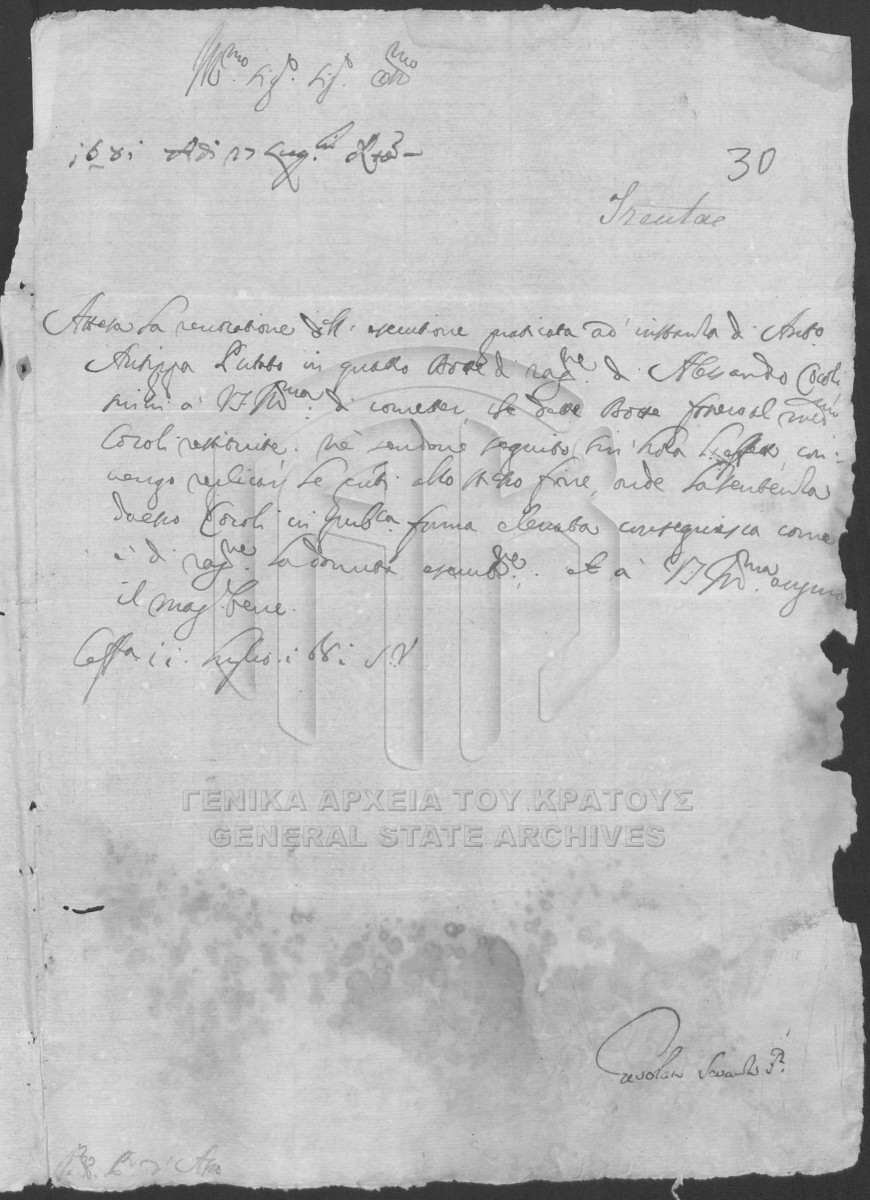 Ill.mo Sig.r Sig.r Col.mo
1681 Adi 27 Lug.o
30
Trentae
Attesa la revocatione dell' esecutione praticata ad' instanza di Anto.
Antippa in quatro Botte di rag.ne di Alessandro Cocoli
scrissi à VS Ill.ma di cometter, che dette Botte fossero al med.mo
Cocoli restituite. nè sendone seguito fin' hora l'effetto, con:
vengo replicar allo stesso fine, onde la sentenza
d'esso Cocoli in publica forma conseguisca come
è di rag.ne la dovuta esecut.ne. et à VS Ill.ma auguro
il mag.r bene.
Ceffa. 11. Luglio. 1681 S.V
ΓΕΝΙΚΑ ΑΡΧΕΙΑ ΤΟΥ ΚΡΑΤΟΥΣ
GENERAL STATE ARCHIVES